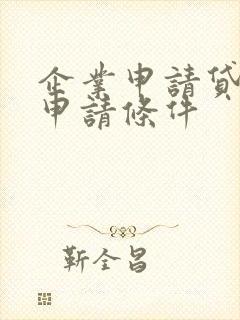 企業申請貸
申請條件
靳全昌